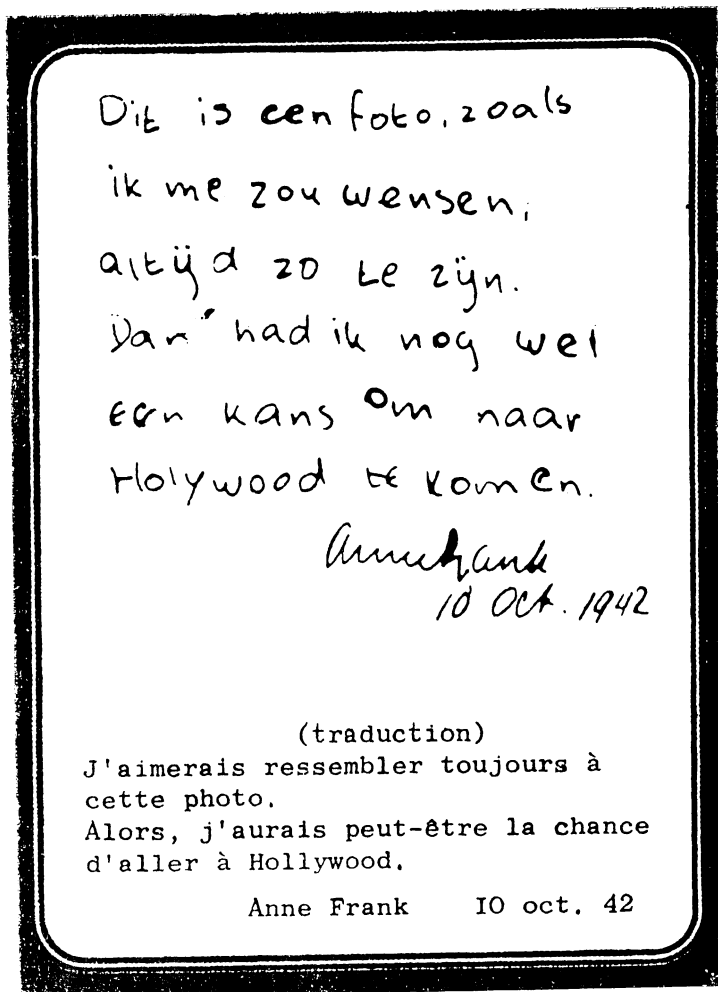 Dit is een foto, zoals
ik me zou wensen,
altijd zo te zijn.
Dan had ik nog wel
een kans om naar
Holywood te komen.
Anne Frank
10 Oct. 1942
(traduction)
J'aimerais ressembler toujours à
cette photo.
Alors, j'aurais peut-être la chance
d'aller à Hollywood.
Anne Frank IO oct. 42